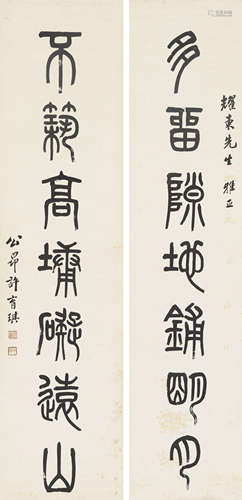 耀東先生雅正
多畱隙地鋪朙月
不築高墉礙遠山
公昂許育琪